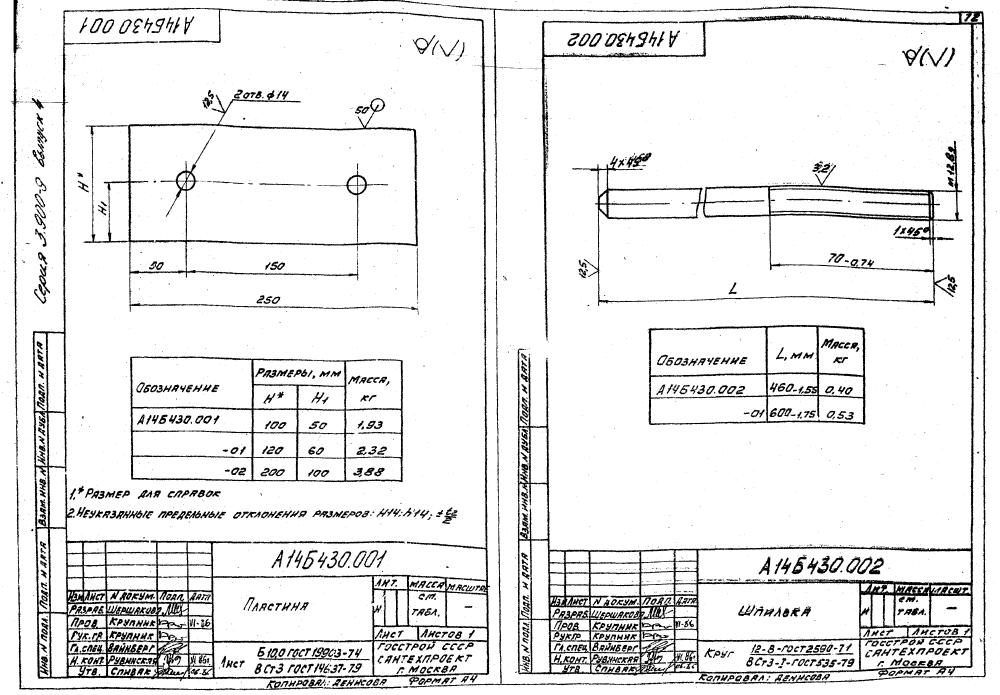 72
Серия 3.900-9 выпуск 4
А14Б430.001
√(√)
2 отв. ф14
12,5
50
H*
H1
50
150
250
Обозначение
Размеры, мм
Масса, кг
H*
H1
А14Б430.001 100 50 1,93
-01 120 60 2,32
-02 200 100 3,88
1.* Размер для справок
2. Неуказанные предельные отклонения размеров: H14; h14; ± t2/2
Взам. инв. № Инв. № дубл. Подп. и дата
Инв. № подл. Подп. и дата
А14Б430.001
Изм Лист № докум. Подп. Дата
Разраб. Шершакова
Пров. Крупник VI-86
Рук.гр. Крупник
Гл.спец. Вайнберг
Н.конт. Рувинская
Утв. Спивак
Пластина
Лит. Масса Масштаб
И
см. табл.
–
Лист
Листов 1
Лист
Б 10,0 ГОСТ 19903-74
В Ст3 ГОСТ 14637-79
Госстрой СССР
Сантехпроект
г. Москва
Копировал: Денисова
Формат А4
А14Б430.002
√(√)
4×45°
3,2
М12.8g
1×45°
70-0,74
12,5
12,5
L
Обозначение
L, мм
Масса, кг
А14Б430.002 460-1,55 0,40
-01 600-1,75 0,53
Взам. инв. № Инв. № дубл. Подп. и дата
Инв. № подл. Подп. и дата
А14Б430.002
Изм Лист № докум. Подп. Дата
Разраб. Шершакова
Пров. Крупник VI-86
Рук.гр. Крупник
Гл.спец. Вайнберг
Н.конт. Рувинская
Утв. Спивак
Шпилька
Лит. Масса Масшт.
И
см. табл.
–
Лист
Листов 1
Круг
12-В-ГОСТ 2590-71
В Ст3-I-ГОСТ 535-79
Госстрой СССР
Сантехпроект
г. Москва
Копировал: Денисова
Формат А4